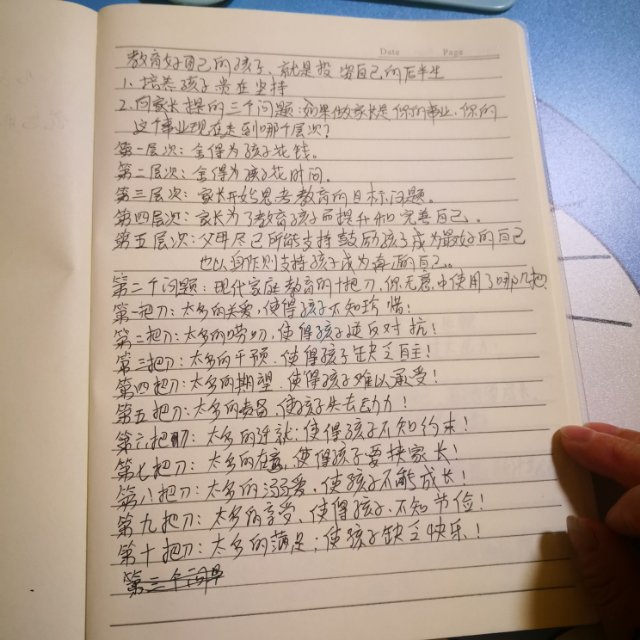 Date Page
教育好自己的孩子、就是投资自己的后半生
1、培养孩子贵在坚持
2.向家长提的三个问题:如果做家长是你的事业、你的
这个事业现在走到哪个层次?
第一层次:舍得为孩子花钱。
第二层次:舍得为孩子花时间。
第三层次:家长开始思考教育的目标问题。
第四层次:家长为了教育孩子而提升和完善自己。
第五层次:父母尽己所能支持鼓励孩子成为最好的自己
也以身作则支持孩子成为真正的自己。
第二个问题:现代家庭教育的十把刀,你无意中使用了哪几把
第一把刀:太多的关爱,使得孩子不知珍惜!
第二把刀:太多的唠叨,使得孩子逆反对抗!
第三把刀:太多的干预、使得孩子缺乏自主!
第四把刀:太多的期望、使得孩子难以承受!
第五把刀:太多的责备、使孩子失去动力!
第六把刀:太多的迁就;使得孩子不知约束!
第七把刀:太多的在意,使得孩子要挟家长!
第八把刀:太多的溺爱,使孩子不能成长!
第九把刀:太多的享受、使得孩子、不知节俭!
第十把刀:太多的满足;使孩子缺乏快乐!
第三个问